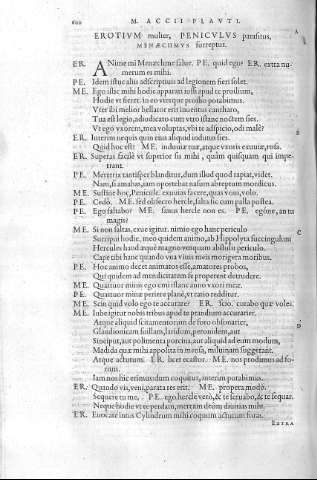 M. ACCII PLAVTI.
EROTIVM mulier, PENICVLVS parasitus,
MENAECHMVS surreptus.
ER. ANime mi Menaechme salue. PE. quid ego? ER. extra nu-
merum es mihi.
PE. Idem istuc aliis adscriptiuis ad legionem fieri solet.
ME. Ego istic mihi hodie apparari iussi apud te prœlium,
Hodie ut fieret. in eo uterque prœlio potabimus.
Vter ibi melior bellator erit inuentus cantharo,
Tua est legio, adiudicato cum utro istanc noctem sies.
Vt ego uxorem, mea voluptas, ubi te adspicio, odi male?
ER. Interim nequis quin eius aliquid indutus sies.
Quid hoc est? ME. induuiae tuae, atque uxoris exuuiae, rosa.
ER. Superas facile ut superior sis mihi, quàm quisquam qui impe-
trant.
PE. Meretrix tantisper blanditur, dum illud quod rapiat, videt.
Nam, si amabas, iam oportebat nasum abreptum mordicus.
ME. Sustine hoc, Penicule: exuuias facere, quas voui, volo.
PE. Cedò. sed obsecro hercle, salta sic cum palla postea.
ME. Ego saltabo? sanus hercle non es. PE. egóne, an tu
magis?
ME. Si non saltas, exue igitur. nimio ego hanc periculo
Surripui hodie. meo quidem animo, ab Hippolyta succingulum
Hercules haud aequè magno unquam abstulit periculo.
Cape tibi hanc quando una viuis meis morigera moribus.
PE. Hoc animo decet animatos esse, amatores probos,
Qui quidem ad mendicitatem se properent detrudere.
ME. Quatuor minis ego emi istanc anno uxori meae.
PE. Quatuor minae periere planè, ut ratio redditur.
ME. Scin quid volo ego te accurare? ER. scio. curabo quae voles.
ME. Iube igitur nobis tribus apud te prandium accurarier.
Atque aliquid scitamentorum de foro obsonarier,
Glandionicam suillam, laridum, pernonidem, aut
Sinciput, aut polimenta porcina, aut aliquid ad eum modum,
Madida quae mihi apposita in mensa, miluinam suggerant.
Atque actutum. ER. licet ecastor. ME. nos prodimus ad fo-
rum.
Iam nos hic erimus: dum coquitur, interim potabimus.
ER. Quando vis, veni. parata res erit. ME. propera modò.
Sequere tu me. PE. ego hercle verò, & te seruabo, & te sequar.
Neque hodie ut te perdam, meream deûm diuitias mihi.
ER. Euocate intus Cylindrum mihi coquum actutum foras.
EXTRA